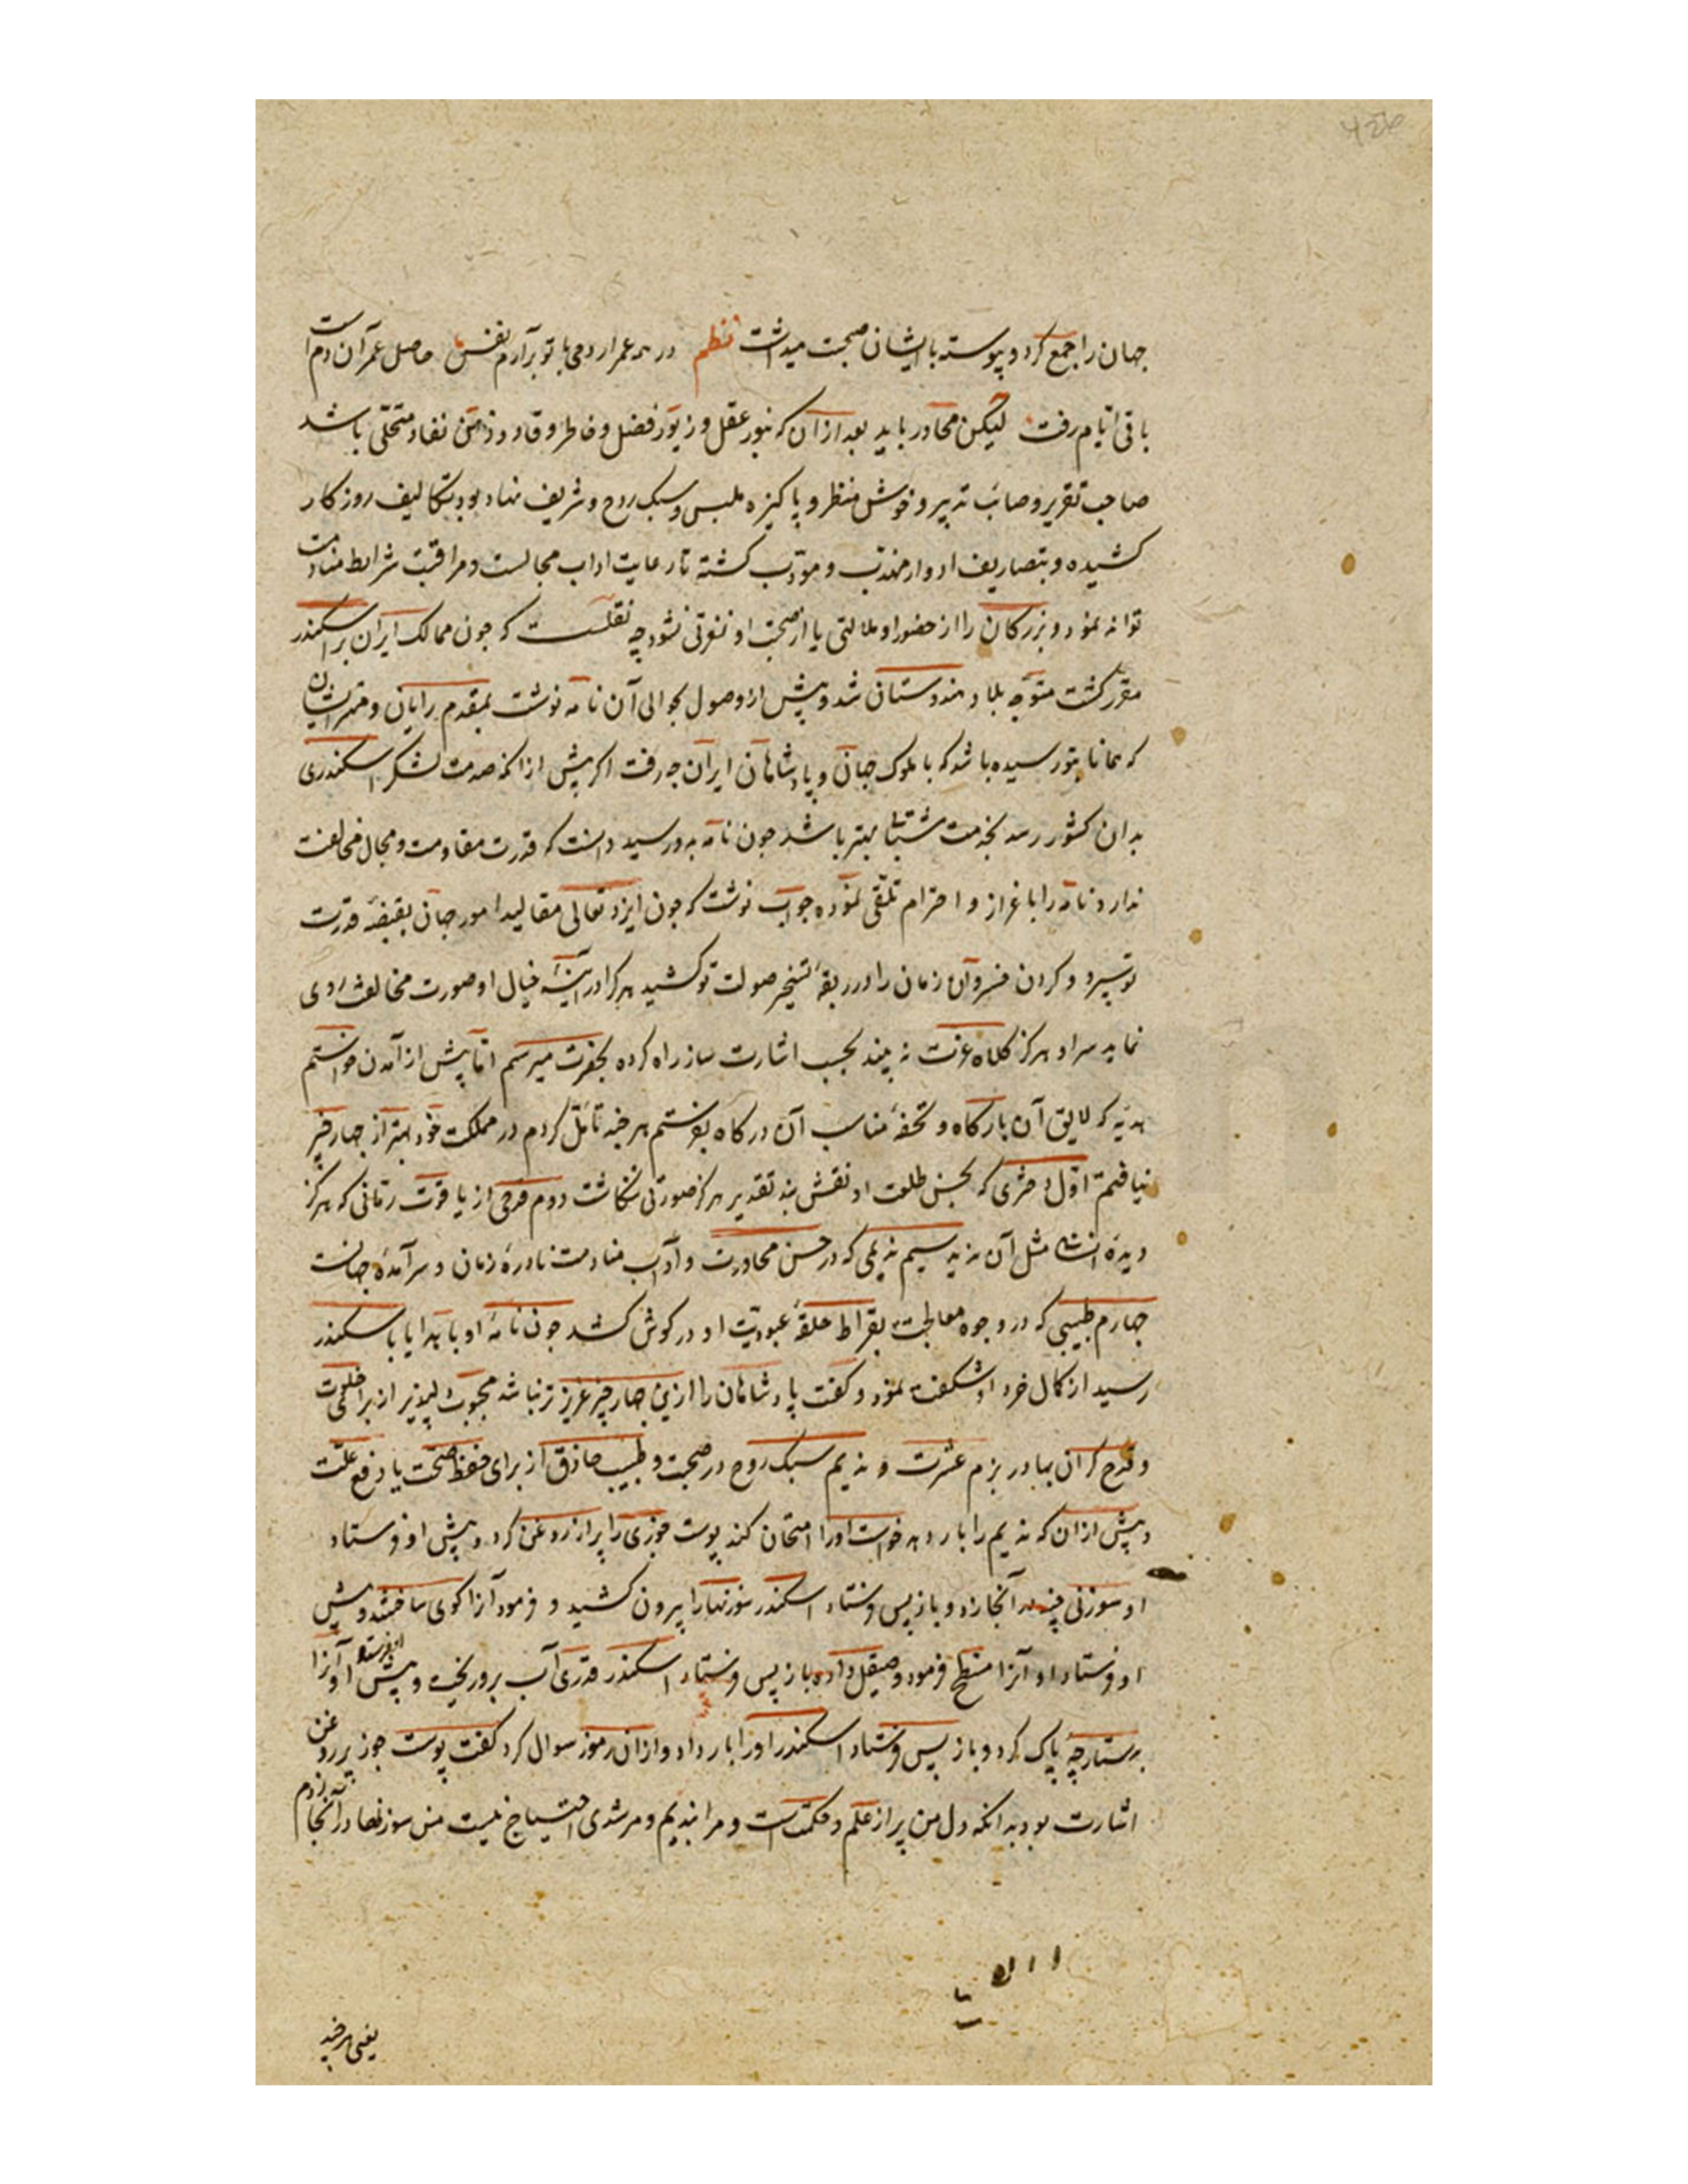 جهان را جمع کرد و پیوسته با ایشان صحبت میداشت نظم در همه عمر ار دمی با تو برآرم نفسی حاصل عمر آن دم است
باقی ایام رفت لیکن محاور باید بعد از آن که بنور عقل و زیور فضل و خاطر وقاد و ذهن نقاد متحلّی باشد
صاحب تقریر و صائب تدبیر و خوش منظر و پاکیزه ملبس و سبک روح و شریف نهاد بود بتکالیف روزکار
کشیده و بتصاریف ادوار مهذب و مؤدب کشته تا رعایت اداب مجالست و مراقبت شرایط منادمت
تواند نمود و بزرکان را از حضور او ملالتی یا از صحبت او نفرتی نشود چه نقلست که جون ممالک ایران بر اسکندر
مقرر کشت متوجه بلاد هندوستان شد و پیش از وصول بحوالی آن نامه نوشت بمقدم رایان و مهتر ایشان
که همانا بتو رسیده باشد که با ملوک جهان و پادشاهان ایران چه رفت اکر پیش از انکه صدمت لشکر اسکندری
بدان کشور رسد بخدمت شتابی بهتر باشد جون نامه بدو رسید دانست که قدرت مقاومت و مجال مخالفت
ندارد نامه را باعزاز و احترام تلقی نموده جواب نوشت که جون ایزد تعالی مقالید امور جهان بقبضه قدرت
تو سپرد و کردن خسروان زمان را در ربقهٔ تسخیر صولت تو کشید هر کرا در آینهٔ خیال او صورت مخالفت روی
نماید سر او هرکز کلاه عزت نه بیند بحسب اشارت ساز راه کرده بحضرت میرسم امّا پیش از آمدن خواستم
هدیه که لایق آن بارکاه و تحفهٔ مناسب آن درکاه بفرستم هر چند تأمل کردم در مملکت خود بهتر از چهار چیز
نیافتم اوّل دختری که بحسن طلعت او نقش بند تقدیر هرکز صورتی ننکاشت دوم قدحی از یاقوت رمّانی که هرکز
دیدهٔ انسان مثل آن ندید سیم ندیمی که در حسن محاورت و آداب منادمت نادرهٔ زمان و سرآمدهٔ جهانست
چهارم طبیبی که در وجوه معالجت بقراط حلقهٔ عبودیت او در کوش کشد جون نامهٔ او با هدایا باسکندر
رسید از کمال خرد او شکفت نمود و کفت پادشاهان را ازین چهار چیز عزیزتر نباشد محبوب دلپذیر از برای خلوت
و قدح کران بها در بزم عشرت و ندیم سبک روح در صحبت و طبیب حاذق از برای حفظ صحّت یا دفع علّت
و پیش از ان که ندیم را بار دهد خواست او را امتحان کند پوست جوزی را پر از روغن کرد و پیش او فرستاد
او سوزنی چند در آنجا زد و باز پس فرستاد اسکندر سوزنها را بیرون کشید و فرمود آنرا کوی ساختند و پیش
او فرستاد او آنرا مسطّح فرمود و صیقل داده باز پس فرستاد اسکندر قدری آب برو ریخت و پیش او فرستاد او آنرا
بدستارچه پاک کرد و باز پس فرستاد اسکندر او را بار داد و از ان رموز سوال کرد کفت پوست جوز پر روغن
اشارت بود بدانکه دل من پر از علم و حکمتست و مرا بندیم و مرشدی احتیاج نیست من سوزنها در آنجا زدم
یعنی هر چند